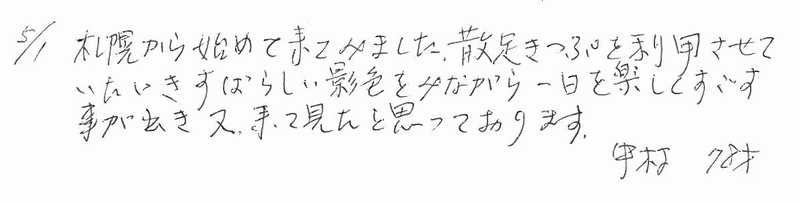 5/1 札幌から始めて来てみました、散足きっぷを利用させて
いただきすばらしい景色をみながら一日を楽しくすごす
事が出き又、来て見たと思っております。
中村 78才